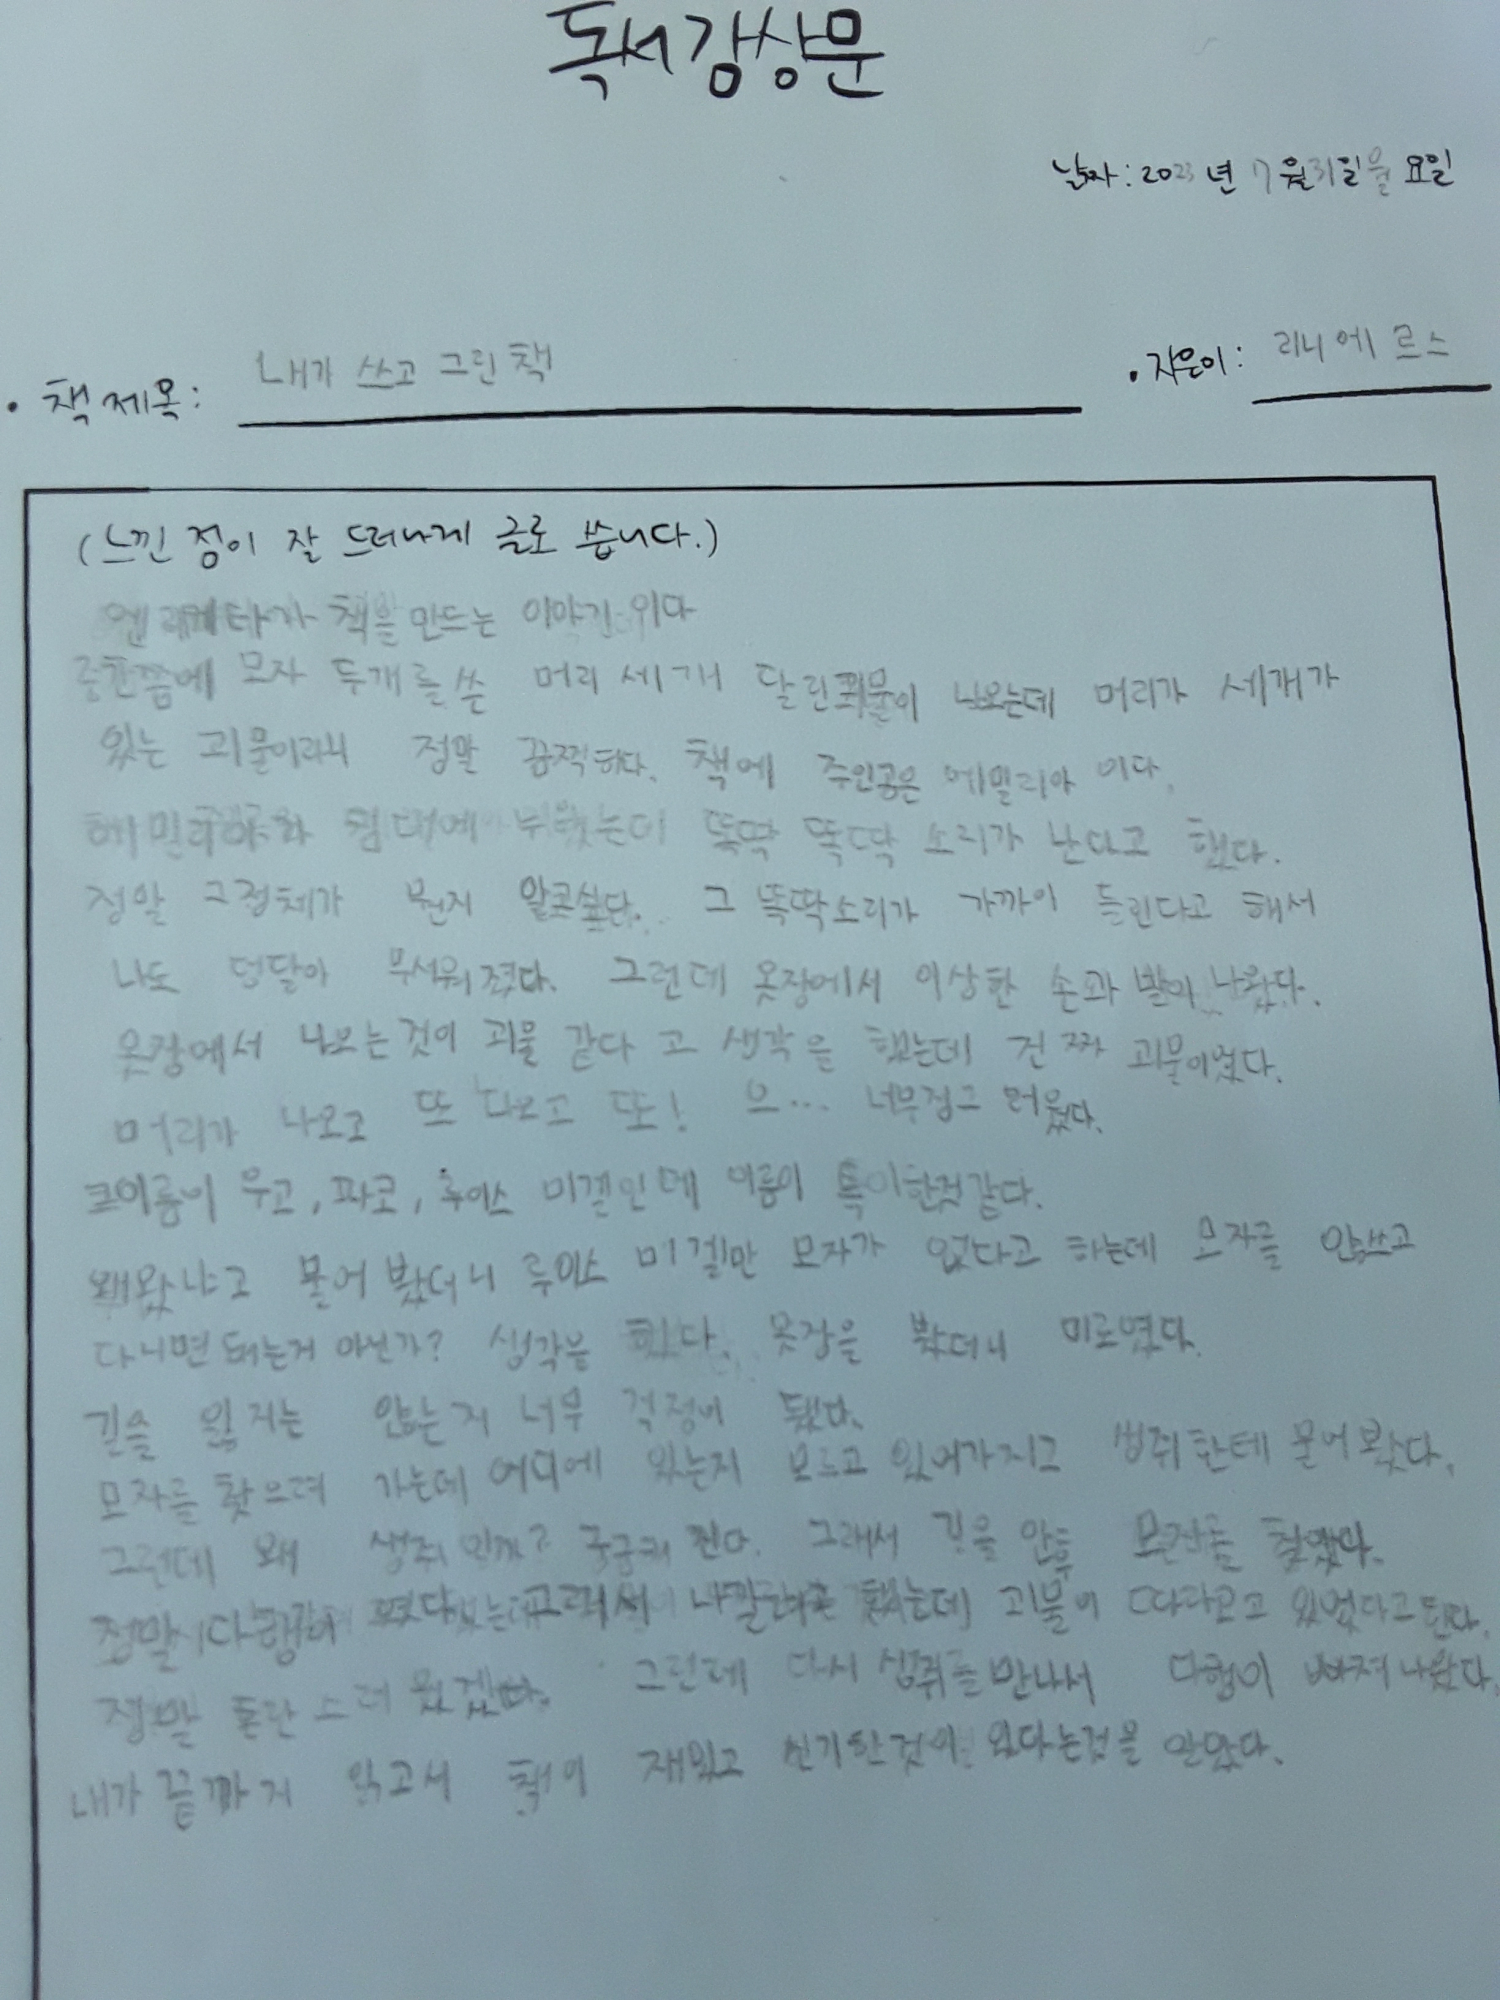 독서감상문
날짜: 2023년 7월 31일 월요일
• 책 제목: 내가 쓰고 그린 책 • 지은이: 리니에르스
(느낀 점이 잘 드러나게 글로 씁니다.)
엔리케타가 책을 만드는 이야기
중간쯤에 모자 두개를 쓴 머리 세개 달린 괴물이 나오는데 머리가 세개가
있는 괴물이라니 정말 끔찍하다. 책에 주인공은 에밀리아 이다.
에밀리아가 침대에 누웠는데 뚝딱 뚝딱 소리가 난다고 했다.
정말 그정체가 뭔지 알고싶다. 그 뚝딱소리가 가까이 들린다고 해서
나도 덩달아 무서워졌다. 그런데 옷장에서 이상한 손과 발이 나왔다.
옷장에서 나오는것이 괴물 같다고 생각을 했는데 진짜 괴물이었다.
머리가 나오고 또 나오고 또! 으... 너무징그러웠다.
이름이 우고, 파코, 루이스 미겔인데 이름이 특이한것같다.
왜왔냐고 물어 봤더니 루이스 미겔만 모자가 없다고 하는데 모자를 안쓰고
다니면 돼는거 아닌가? 생각을 했다. 옷장을 봤더니 미로였다.
길을 잃지는 않는지 너무 걱정이 됐다.
모자를 찾으려 가는데 어디에 있는지 모르고 있어가지고 생쥐한테 물어봤다.
그런데 왜 생쥐일까? 궁금해진다. 그래서 길을 안후 모자를 찾았다.
정말 다행이 그래서 했는데 괴물이 따라오고 있었다고한다.
정말 혼란스러웠겠다. 그런데 다시 생쥐를 만나서 다행이 빠져나왔다.
내가 끝까지 읽고서 책이 재밌고 신기한것이 있다는것을 알았다.